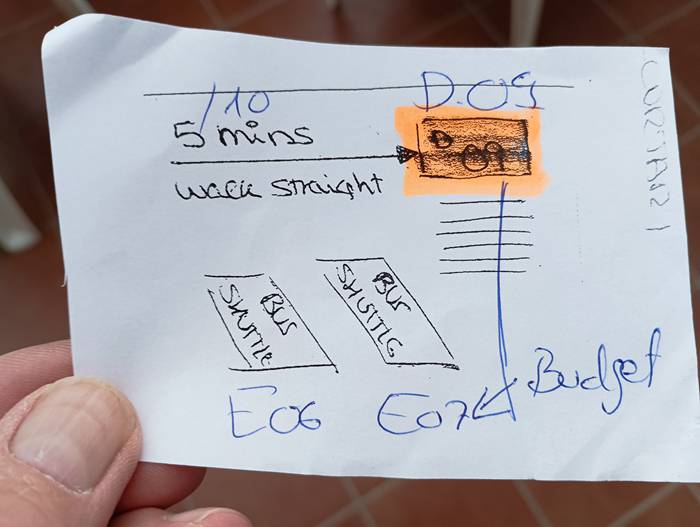 /10
D.09
5 mins
D 09
walk straight
BUS
SHUTTLE
BUS
SHUTTLE
Budget
E06
E07